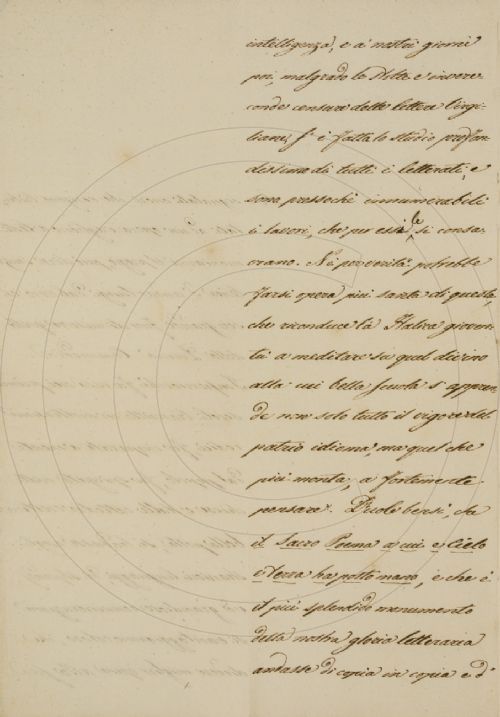 intelligenza, e a' nostri giorni
poi, malgrado le stolte e invere-
conde censure delle lettere Virgi-
liane, s' è fatta lo studio profon-
dissimo di tutti i letterati, e
sono pressochè innumerabili
i lavori, che per essi le si consa-
crano. Nè per verità potrebbe
farsi opera più santa di questa,
che riconduce la Italica gioven-
tù a meditare su quel divino
alla cui bella scuola s' appren-
de non solo tutto il vigore del
patrio idioma, ma quel che
più monta, a fortemente
pensare. Duole bensì, che
il Sacro Poema a cui e Cielo
e Terra ha posto mano, e che è
il più splendido monumento
della nostra gloria letteraria
andasse di copia in copia e d'